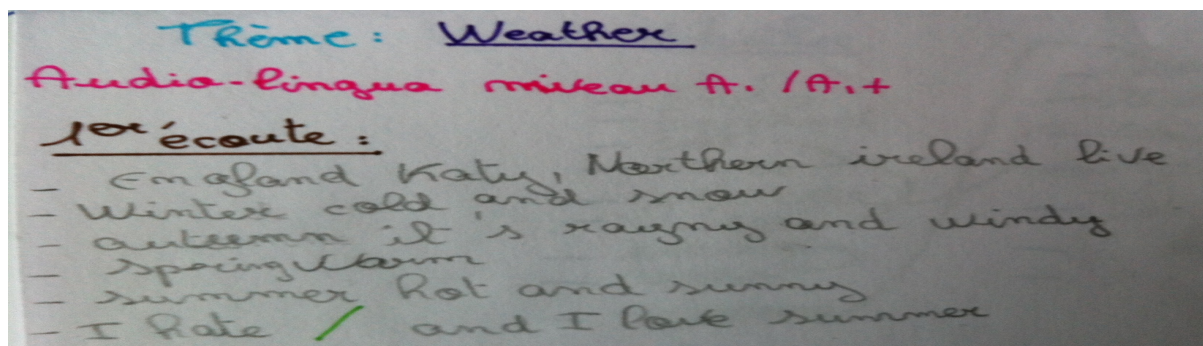 Thème : Weather
Audio-lingua niveau A1 /A1+
1er écoute :
- England Katy, Northern ireland live
- Winter cold and snow
- autumn it's raygny and windy
- spring warm
- summer hot and sunny
- I hate / and I love summer